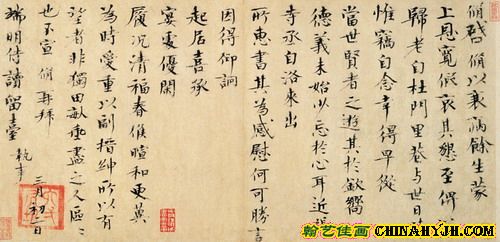 脩啓脩以衰病餘生蒙
上恩寬假哀其懇至俾
歸老自杜門里巷與世日
惟竊自念幸得早從
當世賢者之遊其於欽嚮
德義未始少忘於心耳近
寺丞自洛來出
所惠書其為感慰何可勝言
因得仰詢
起居喜承
宴處優閒
履況清福春候暄和更冀
為時愛重以副搢紳所以有
望者非獨田畝垂盡之人區〻
也不宣脩再拜
端明侍讀留臺執事
三月初二日
翰艺佳画
CHINAHYJH.COM